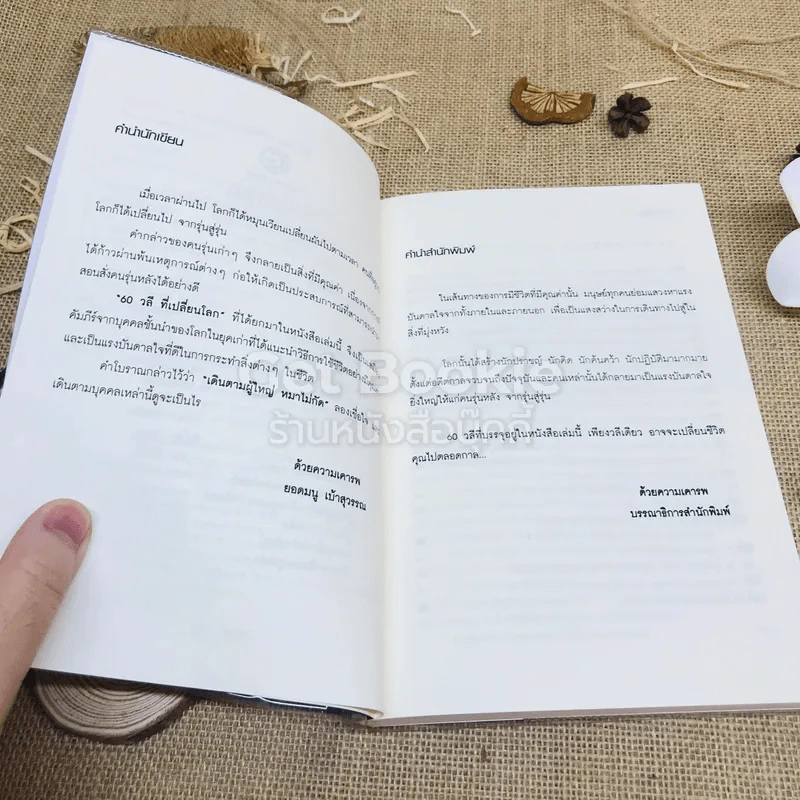 คำนำนักเขียน
เมื่อเวลาผ่านไป โลกก็ได้หมุนเวียนเปลี่ยนผันไปตามเวลา
โลกก็ได้เปลี่ยนไป จากรุ่นสู่รุ่น
คำกล่าวของคนรุ่นเก่าๆ จึงกลายเป็นสิ่งที่มีคุณค่า เนื่องจาก
ได้ก้าวผ่านพ้นเหตุการณ์ต่างๆ ก่อให้เกิดเป็นประสบการณ์ที่สามารถ
สอนสั่งคนรุ่นหลังได้อย่างดี
"60 วลี ที่เปลี่ยนโลก" ที่ได้ยกมาในหนังสือเล่มนี้ จึงเป็น
คัมภีร์จากบุคคลชั้นนำของโลกในยุคเก่าที่ได้แนะนำวิธีการใช้ชีวิตอย่าง
และเป็นแรงบันดาลใจที่ดีในการกระทำสิ่งต่างๆ ในชีวิต
คำโบราณกล่าวไว้ว่า "เดินตามผู้ใหญ่ หมาไม่กัด" ลองเชื่อใจ
เดินตามบุคคลเหล่านี้ดูจะเป็นไร
ด้วยความเคารพ
ยอดมนู เบ้าสุวรรณ
คำนำสำนักพิมพ์
ในเส้นทางของการมีชีวิตที่มีคุณค่านั้น มนุษย์ทุกคนย่อมแสวงหาแรง
บันดาลใจจากทั้งภายในและภายนอก เพื่อเป็นแสงสว่างในการเดินทางไปสู่ใน
สิ่งที่มุ่งหวัง
โลกนั้นได้สร้างนักปราชญ์ นักคิด นักค้นคว้า นักปฏิบัติมามากมาย
ตั้งแต่อดีตกาลจวบจนถึงปัจจุบันและคนเหล่านั้นได้กลายมาเป็นแรงบันดาลใจ
ยิ่งใหญ่ให้แก่คนรุ่นหลัง จากรุ่นสู่รุ่น
60 วลีที่บรรจุอยู่ในหนังสือเล่มนี้ เพียงวลีเดียว อาจจะเปลี่ยนชีวิต
คุณไปตลอดกาล...
ด้วยความเคารพ
บรรณาธิการสำนักพิมพ์
Get Bookie
ร้านหนังสือบุ๊คกี้